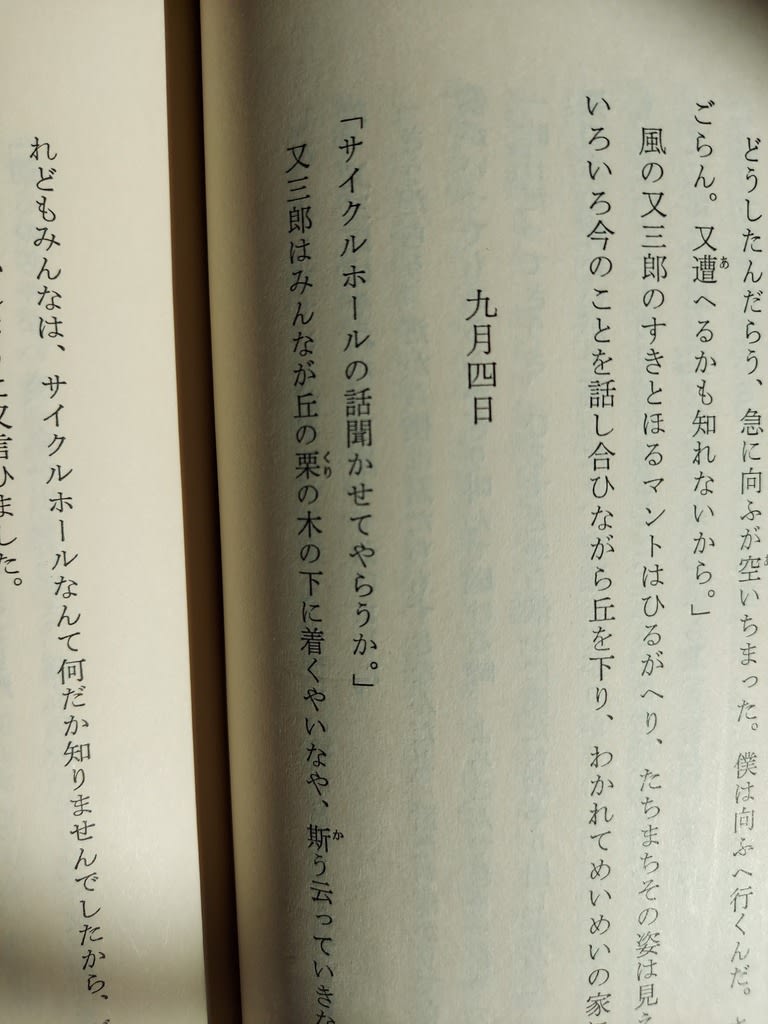 どうしたんだらう、急に向ふが空いちまった。僕は向ふへ行くんだ。
ごらん。又遭へるかも知れないから。」
風の又三郎のすきとほるマントはひるがへり、たちまちその姿は見え
いろいろ今のことを話し合ひながら丘を下り、わかれてめいめいの家
九月四日
「サイクルホールの話聞かせてやらうか。」
又三郎はみんなが丘の栗の木の下に着くやいなや、斯う云っていきな
れどもみんなは、サイクルホールなんて何だか知りませんでしたから、
又言ひました。